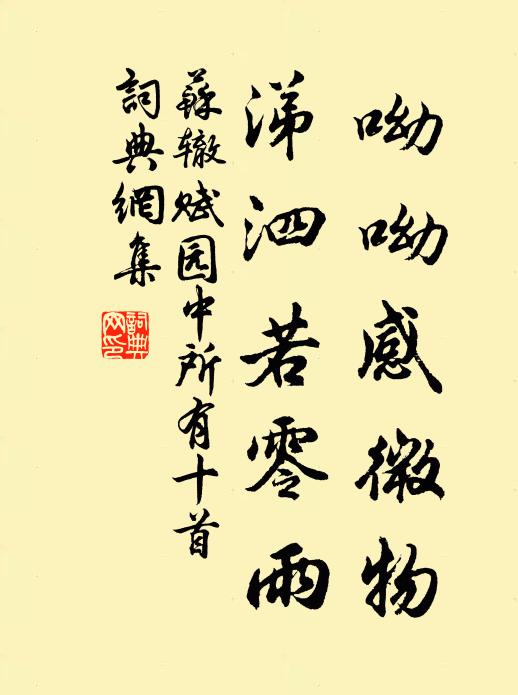 呦呦感微物
涕泗若零雨
蘇辙赋园中所有十首
詞典網集
詞典
网印